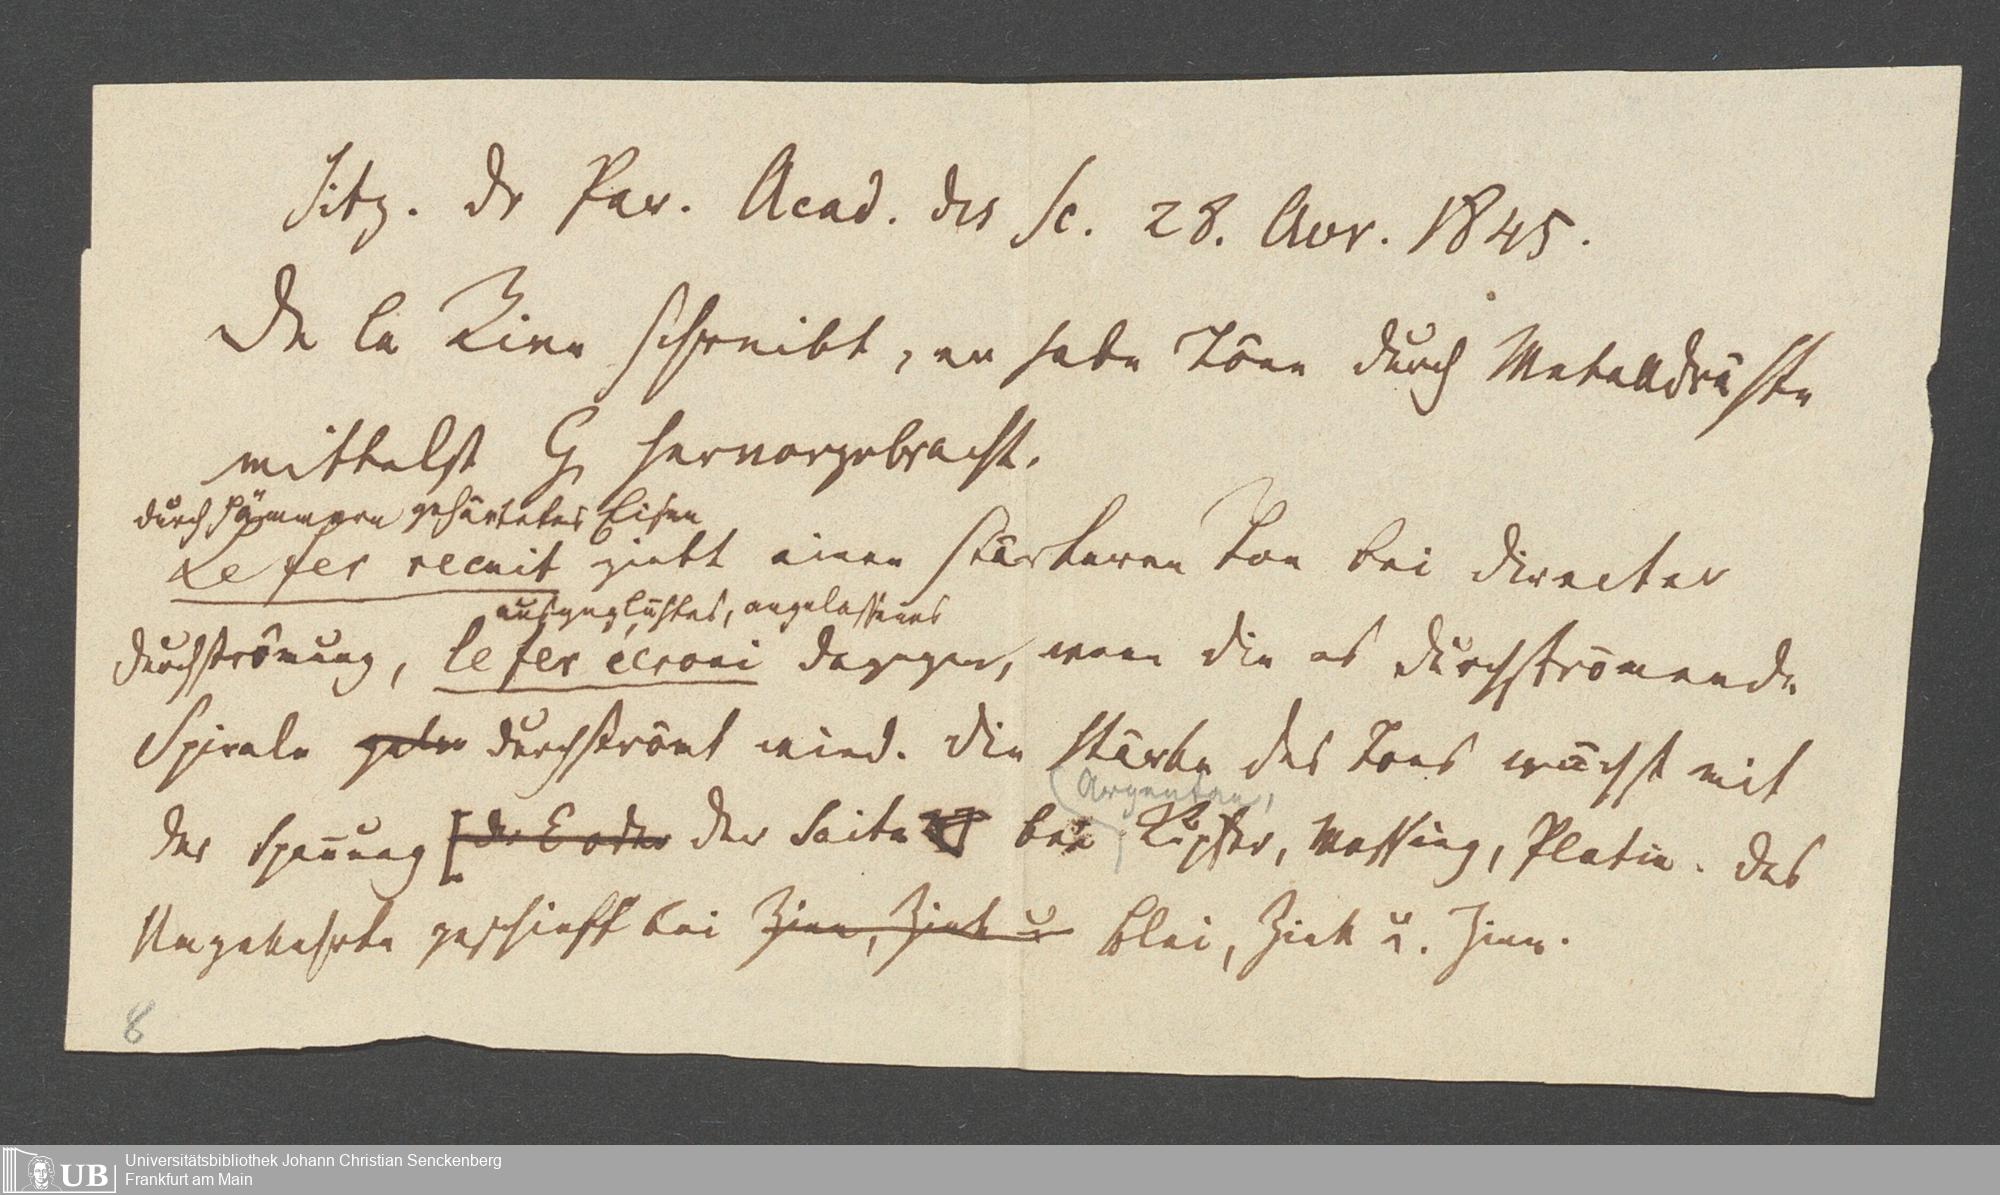 Sitz. dr Par. Acad. des Sc. 28. Avr. 1845.
De la Rive schreibt, er habe Töne durch Metalldräthe
mittelst G hervorgebracht.
durch Hämmern gehärtetes Eisen
Le fer recuit giebt einen stärkeren Ton bei directer
ausgeglühtes, angelassenes
Durchströmung, le fer écroui dagegen, wenn die es durchströmende
Spirale durchströmt wird. Die Stärke des Tons wächst mit
(Argentan,
der Spannung [der E oder der Saite bei Kupfer, Messing, Platin. Das
Umgekehrte geschieht bei Zinn, Zink u Blei, Zink u. Zinn.
8
UB
Universitätsbibliothek Johann Christian Senckenberg
Frankfurt am Main